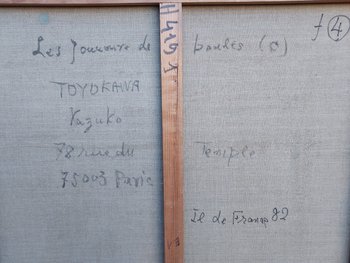 f 4
H4191
Les Joueurs de boules (
TOYOKAWA
Kazuko
78 rue du Temple
75003 Paris
Il de France 82